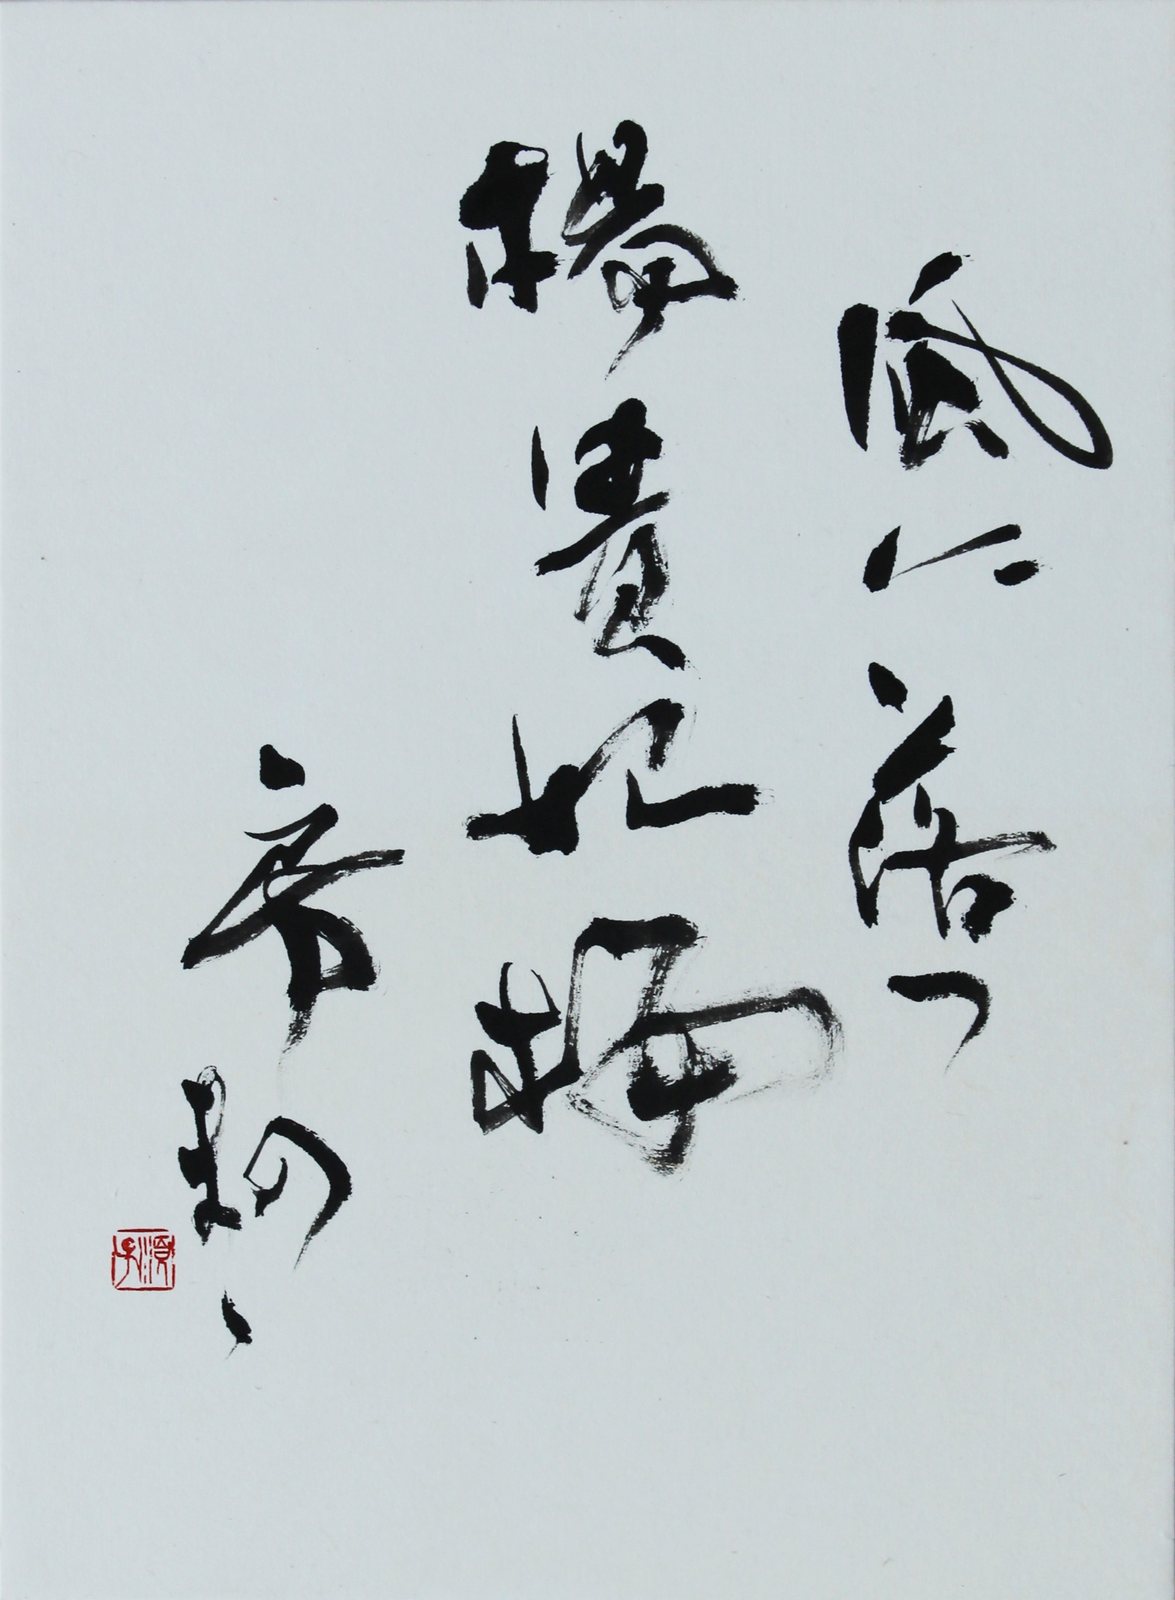 風に落つ
楊貴妃桜
房のまゝ